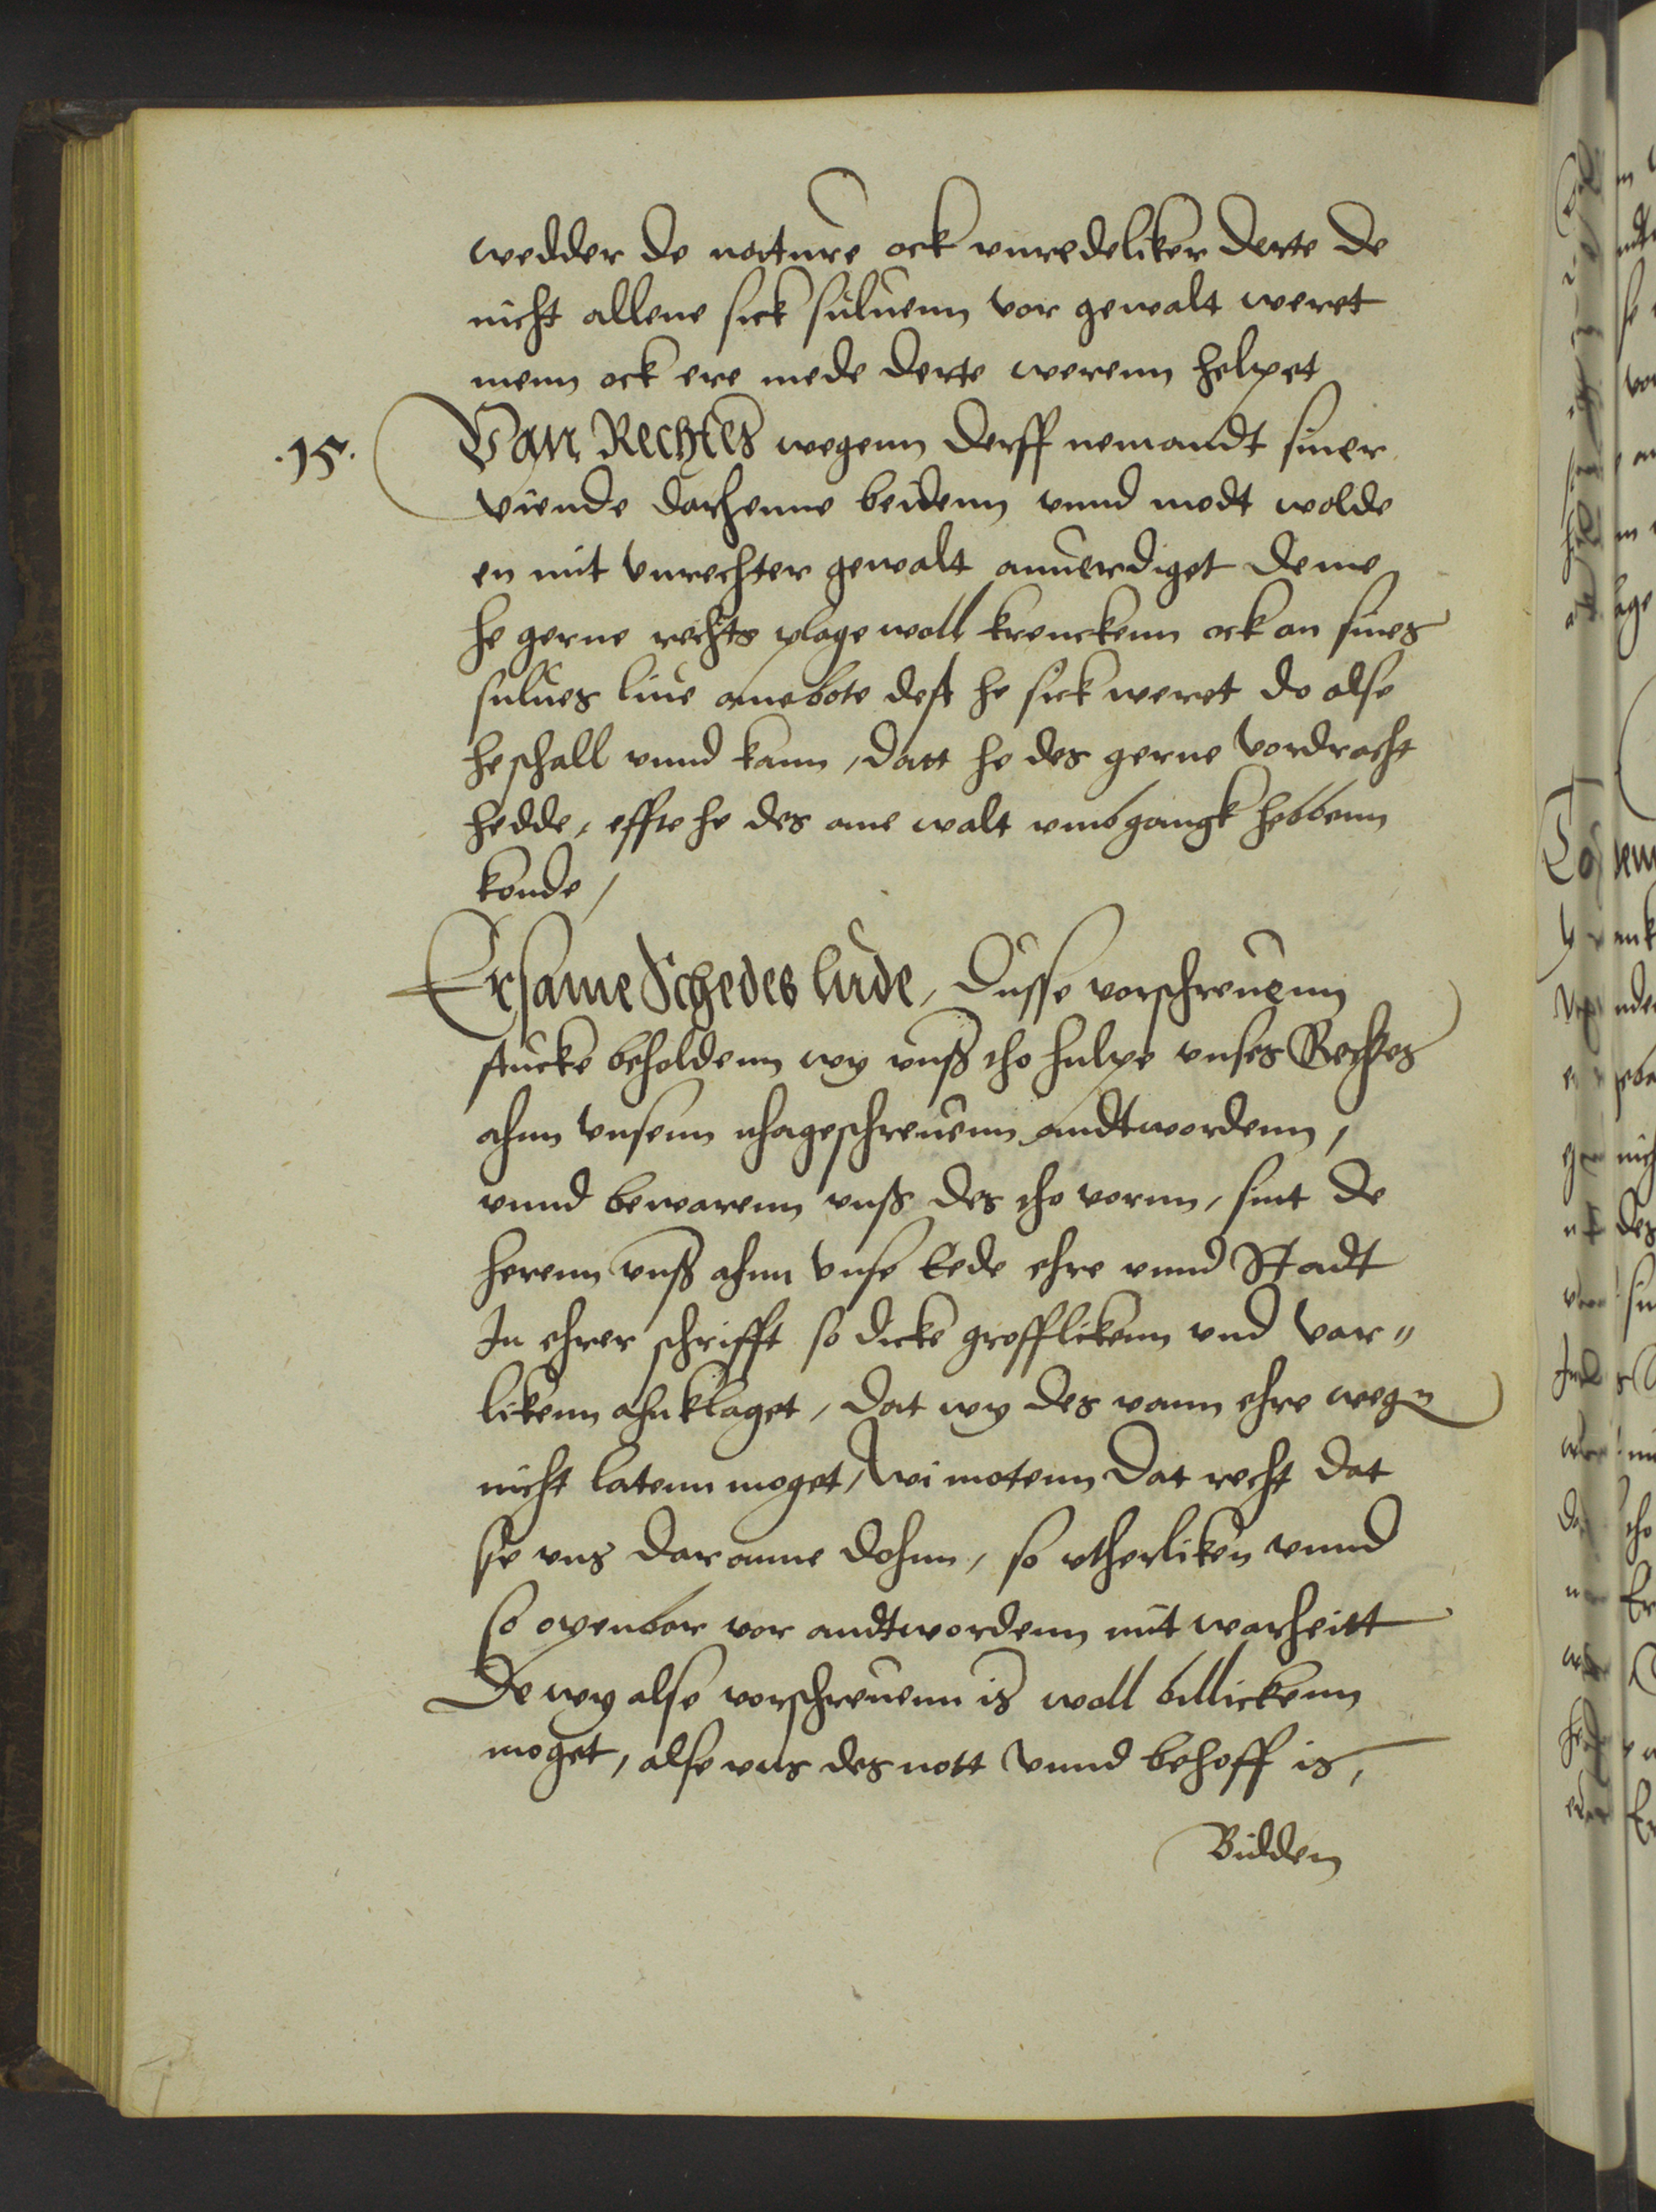 wedder de nature ock vnredeliker derte de
nicht allene sick suluenn vor gewalt weret
menn ock ere mede derte werenn helpet
.15. Van Rechtes wegenn derff nemandt siner
viende darhenne beidenn vnnd modt wolde
en mit vnrechter gewalt anuerdiget deme
he gerne rechts plage woll krenckenn ock an sines
sulues liue ane bote dest he sick weret do alse
he schall vnnd kann, datt he des gerne vordracht
hedde, effte he des ane walt vmbgangk hebbenn
konde,
Ersame Schedes lude, Dusse vorschreuenn
stucke beholdenn wy vnß tho hulpe vnses Rechtes
ahnn vnsenn nhageschreuenn andtwordenn,
vnnd bewarenn vnß des tho vornn, sint de
herenn vnß ahnn vnse Eede ehre vnnd Stadt
In ehrer schrifft so dicke groffliken̄n vnd var„
likenn ahnklaget, dat wy des vann ehre wegn
nicht latenn moget, Wi motenn dat recht dat
se vns daranne dohnn, so vtherliken vnnd
so openbar vor andtwordenn mit warheitt
De wy alse vorschreuenn is woll billickenn
moget, alse vns des nott vnnd behoff is,
Bidden